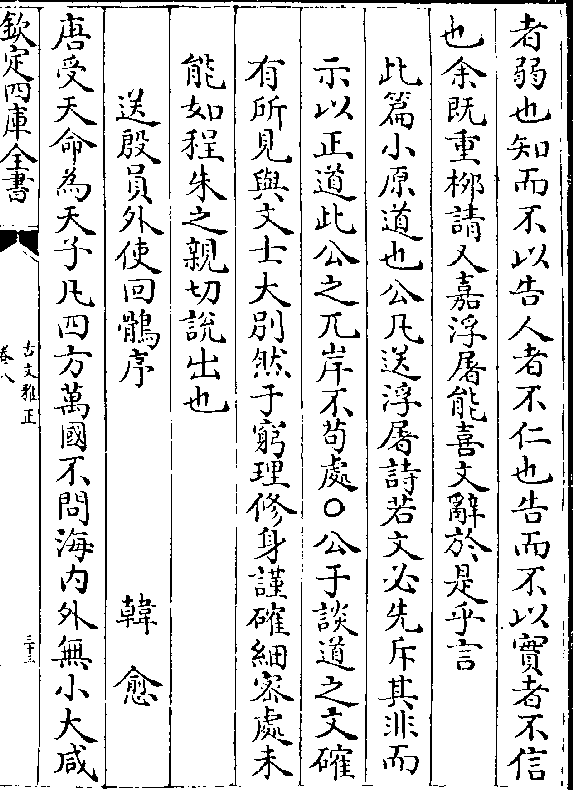 者弱也知而不以告人者不仁也告而不以實者不信
也余既重栁請又嘉浮屠能喜文辭於是乎言
此篇小原道也公凡送浮屠詩若文必先斥其非而
示以正道此公之兀岸不茍處○公于談道之文確
有所見與文士大別然于窮理修身謹確細密處未
能如程朱之親切說出也
送殷員外使回鶻序　韓愈
唐受天命為天子凡四方萬國不問海內外無小大咸
欽定四庫全書
古文雅正
卷八
三十三